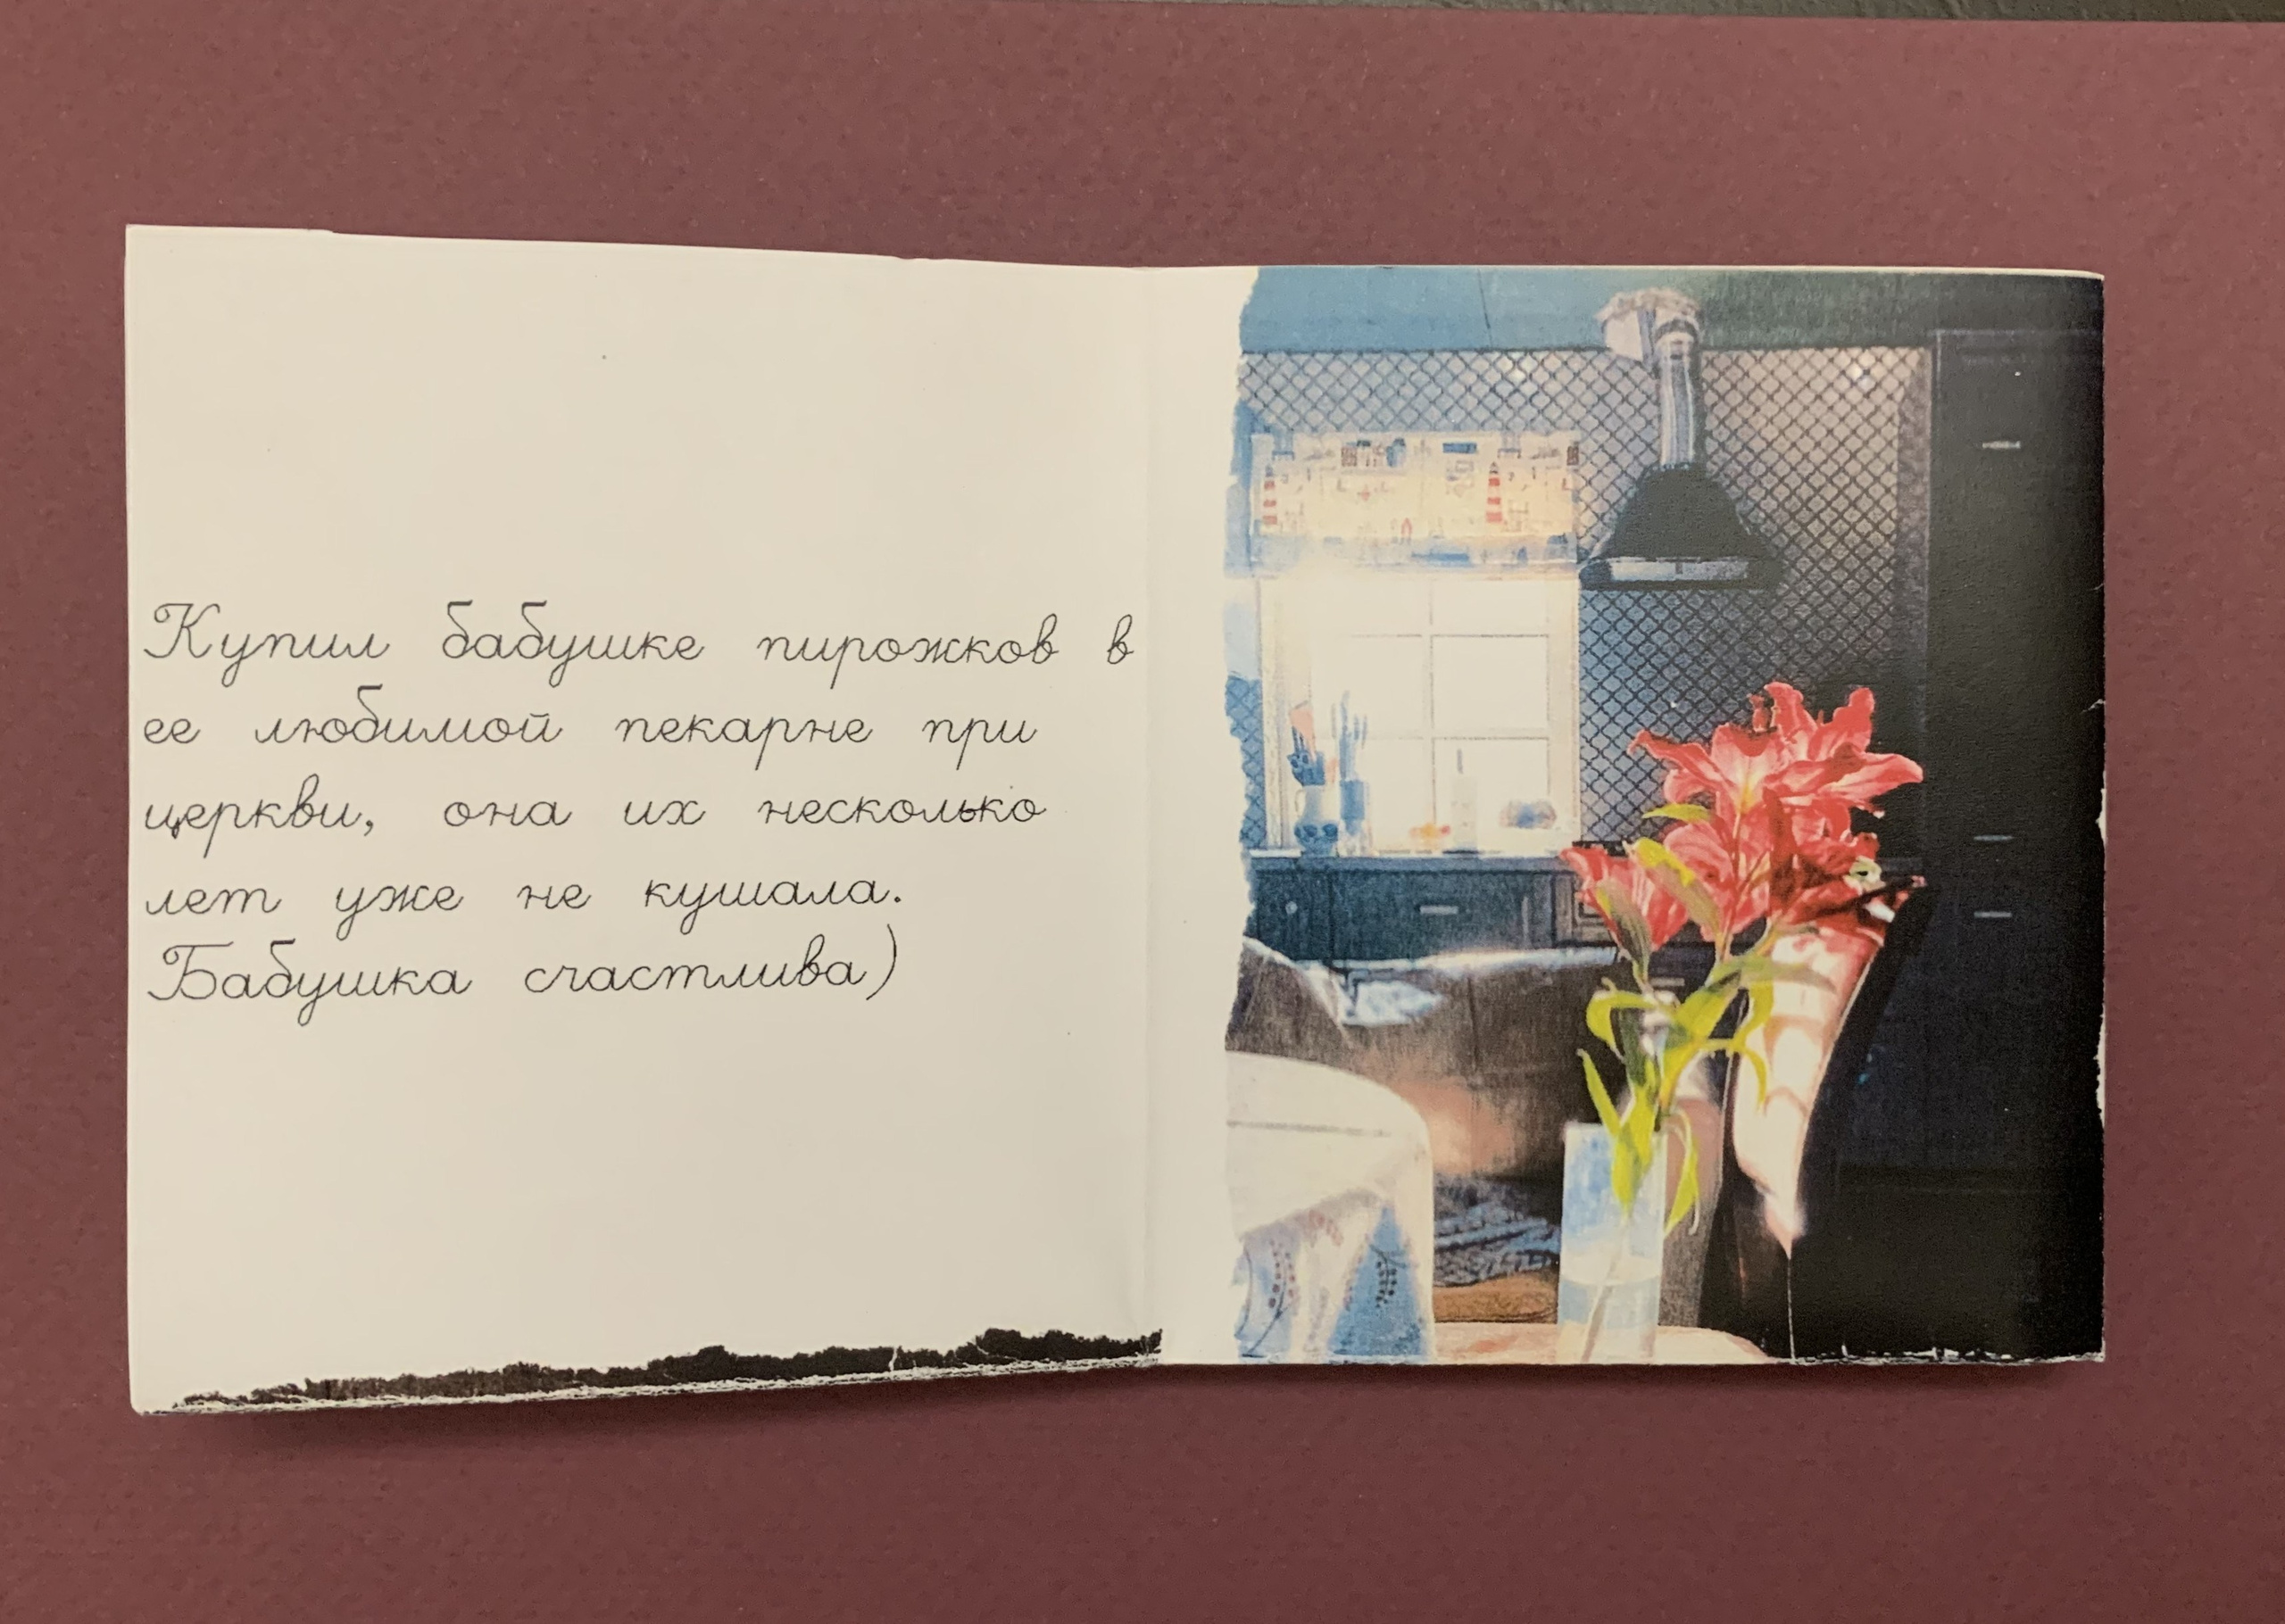 Купил бабушке пирожков в
ее любимой пекарне при
церкви, она их несколько
лет уже не кушала.
Бабушка счастлива)